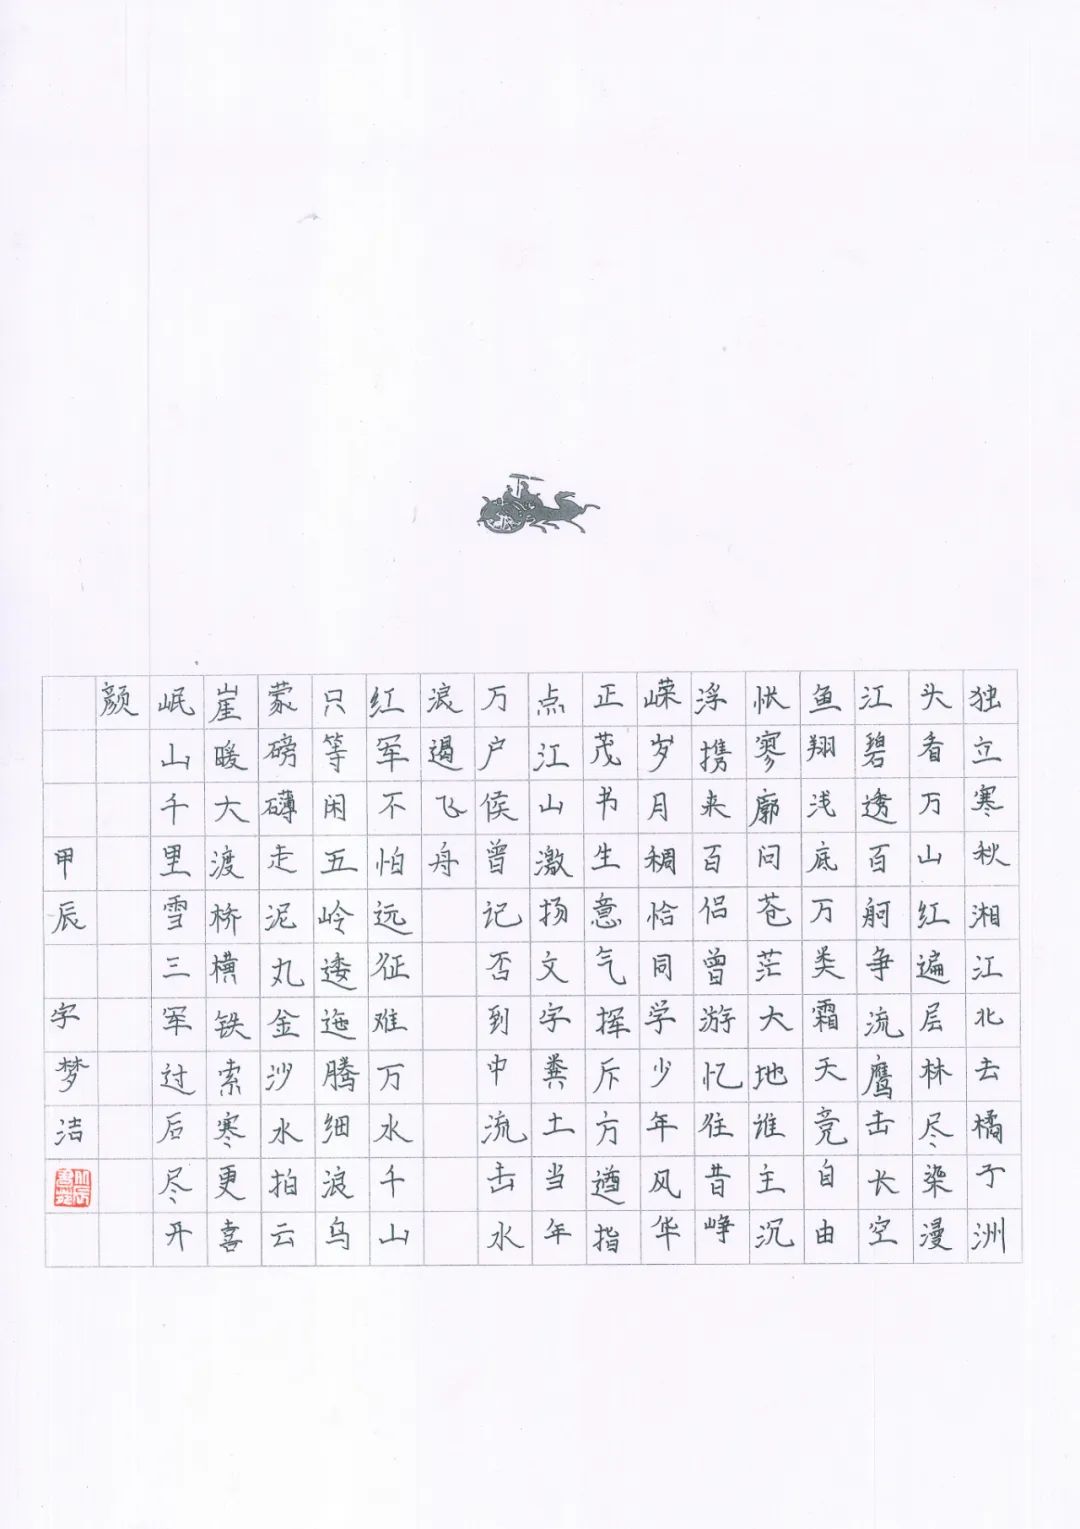 独立寒秋湘江北去橘子洲
头看万山红遍层林尽染漫
江碧透百舸争流鹰击长空
鱼翔浅底万类霜天竞自由
怅寥廓问苍茫大地谁主沉
浮携来百侣曾游忆往昔峥
嵘岁月稠恰同学少年风华
正茂书生意气挥斥方遒指
点江山激扬文字粪土当年
万户侯曾记否到中流击水
浪遏飞舟
红军不怕远征难万水千山
只等闲五岭逶迤腾细浪乌
蒙磅礴走泥丸金沙水拍云
崖暖大渡桥横铁索寒更喜
岷山千里雪三军过后尽开
颜
甲辰 字梦洁